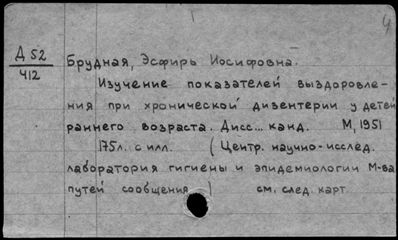 Д 52
412
Брудная, Эсфирь Иосифовна.
Изучение показателей выздоровле-
ния при хронической дизентерии у детей
раннего возраста. Дисс... канд. М, 1951
175л. с илл. (Центр. научно-исслед.
лаборатория гигиены и эпидемиологии М-ва
путей сообщения) см. след. карт.